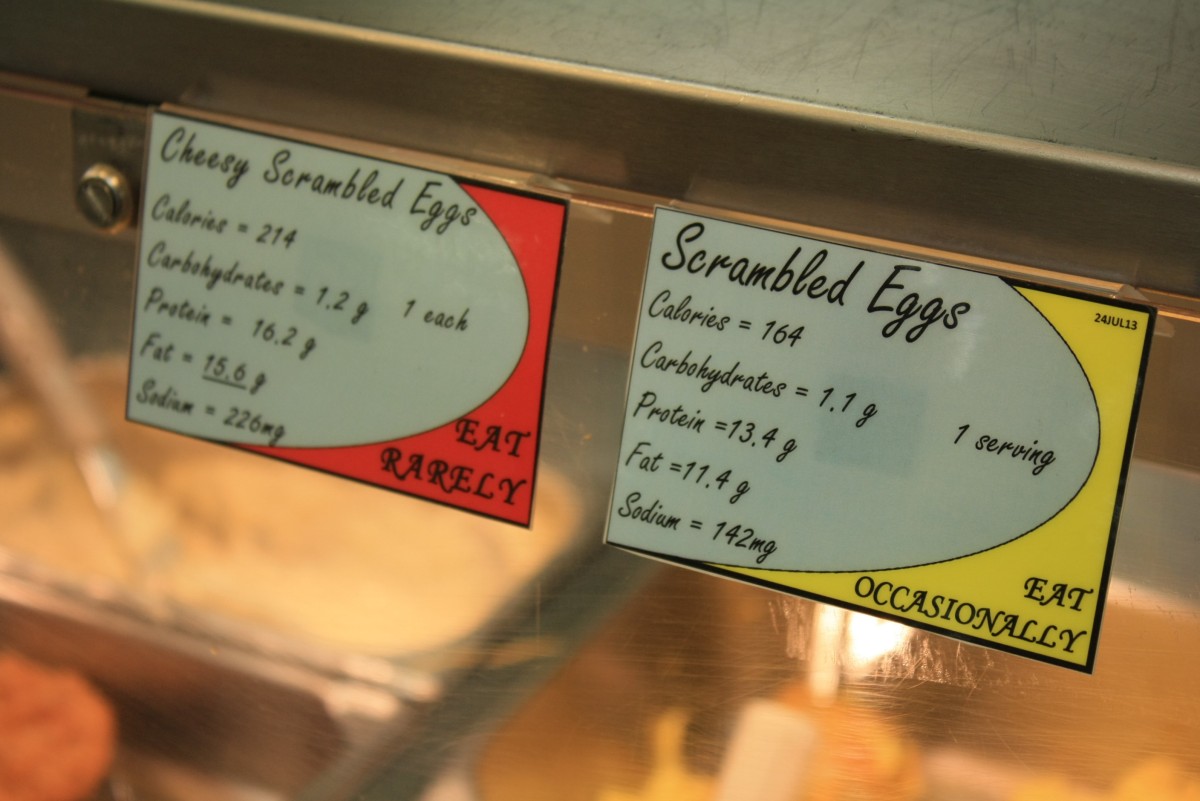 Cheesy Scrambled Eggs
Calories = 214
Carbohydrates = 1.2 g 1 each
Protein = 16.2 g
Fat = 15.6 g
Sodium = 226mg
EAT
RARELY
Scrambled Eggs
24JUL13
Calories = 164
Carbohydrates = 1.1 g
Protein =13.4 g 1 serving
Fat =11.4 g
Sodium = 142mg
EAT
OCCASIONALLY